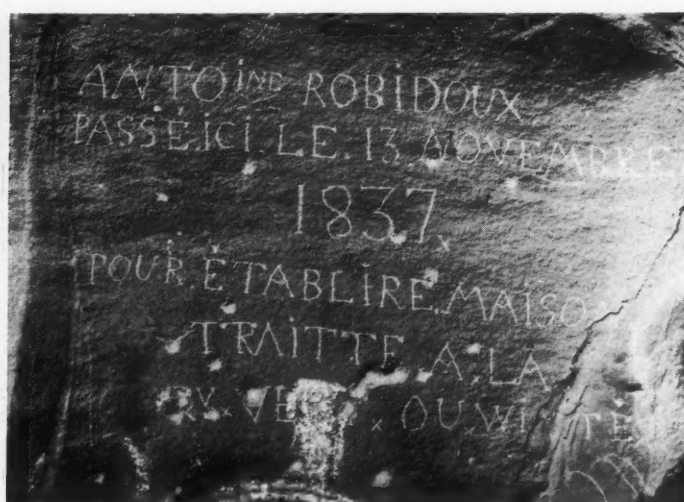 ANTOINE ROBIDOUX
PASSÉ ICI LE 13 NOVEMBRE
1837
POUR ÉTABLIRE MAISO
TRAITTE A LA
RV VERT OU WI TÉ